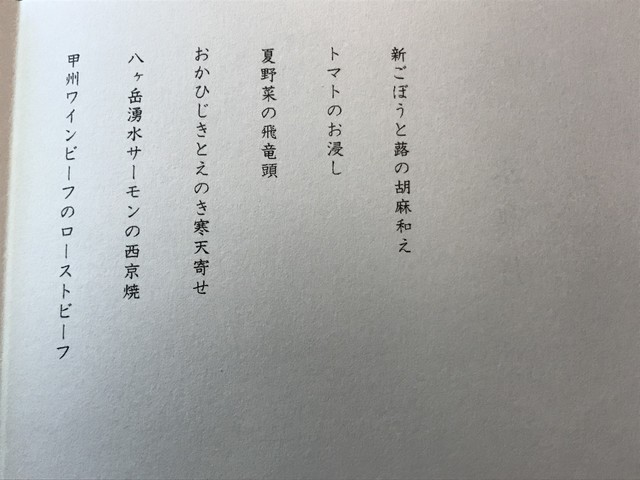 新ごぼうと蕗の胡麻和え
トマトのお浸し
夏野菜の飛竜頭
おかひじきとえのき寒天寄せ
八ヶ岳湧水サーモンの西京焼
甲州ワインビーフのローストビーフ